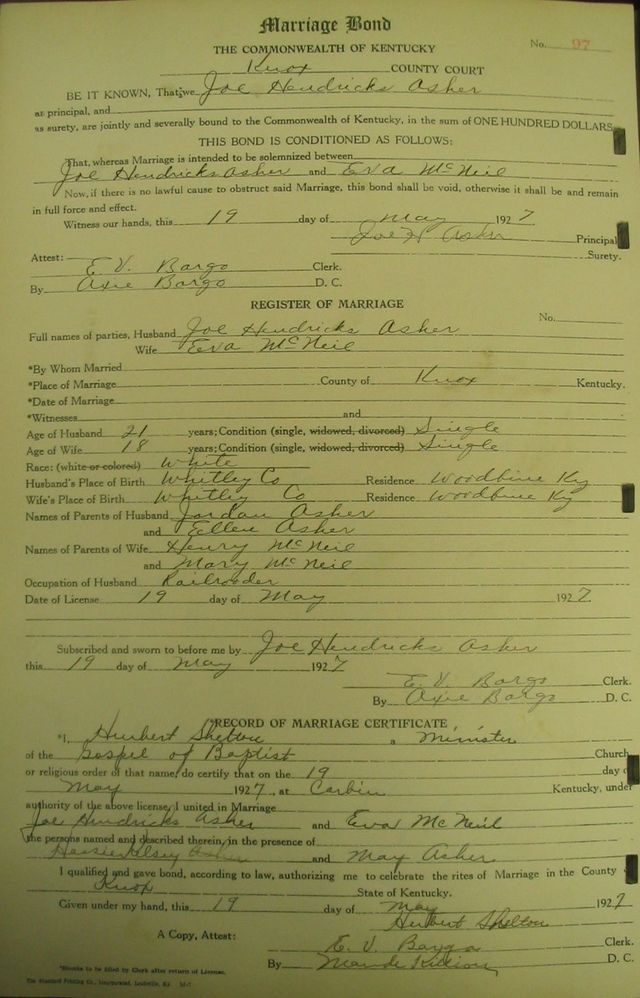 Marriage Bond
THE COMMONWEALTH OF KENTUCKY
No. 97
Knox COUNTY COURT
BE IT KNOWN, That we Joe Hendricks Asher
as principal, and
as surety, are jointly and severally bound to the Commonwealth of Kentucky, in the sum of ONE HUNDRED DOLLARS.
THIS BOND IS CONDITIONED AS FOLLOWS:
That, whereas Marriage is intended to be solemnized between
Joe Hendricks Asher and Eva McNeil
Now, if there is no lawful cause to obstruct said Marriage, this bond shall be void, otherwise it shall be and remain
in full force and effect.
Witness our hands, this 19 day of May 1927
Joe H Asher Principal
Surety.
Attest:
E. V. Bargo Clerk.
By Axie Bargo D. C.
REGISTER OF MARRIAGE
No.
Full names of parties, Husband Joe Hendricks Asher
Wife Eva McNeil
*By Whom Married
*Place of Marriage County of Knox Kentucky.
*Date of Marriage
*Witnesses and
Age of Husband 21 years; Condition (single, widowed, divorced) Single
Age of Wife 18 years; Condition (single, widowed, divorced) Single
Race: (white or colored) White
Husband's Place of Birth Whitley Co Residence Woodbine Ky
Wife's Place of Birth Whitley Co Residence Woodbine Ky
Names of Parents of Husband Jordan Asher
and Ellen Asher
Names of Parents of Wife Henry McNeil
and Mary McNeil
Occupation of Husband Railroader
Date of License 19 day of May 1927
Subscribed and sworn to before me by Joe Hendricks Asher
this 19 day of May 1927
E. V. Bargo Clerk.
By Axie Bargo D. C.
RECORD OF MARRIAGE CERTIFICATE
*I, Hurbert Shelton a Minister
of the Gospel of Baptist Church
or religious order of that name, do certify that on the 19 day o
May 1927, at Corbin Kentucky, under
authority of the above license, I united in Marriage
Joe Hendricks Asher and Eva McNeil
the persons named and described therein, in the presence of
and May Asher
I qualified and gave bond, according to law, authorizing me to celebrate the rites of Marriage in the County
Knox State of Kentucky.
Given under my hand, this 19 day of May 1927
Hurbert Shelton
A Copy, Attest: E. V. Bargo Clerk.
By Maude D. C.
*Blanks to be filled by Clerk after return of License.
The Standard Printing Co., Incorporated, Louisville, Ky.